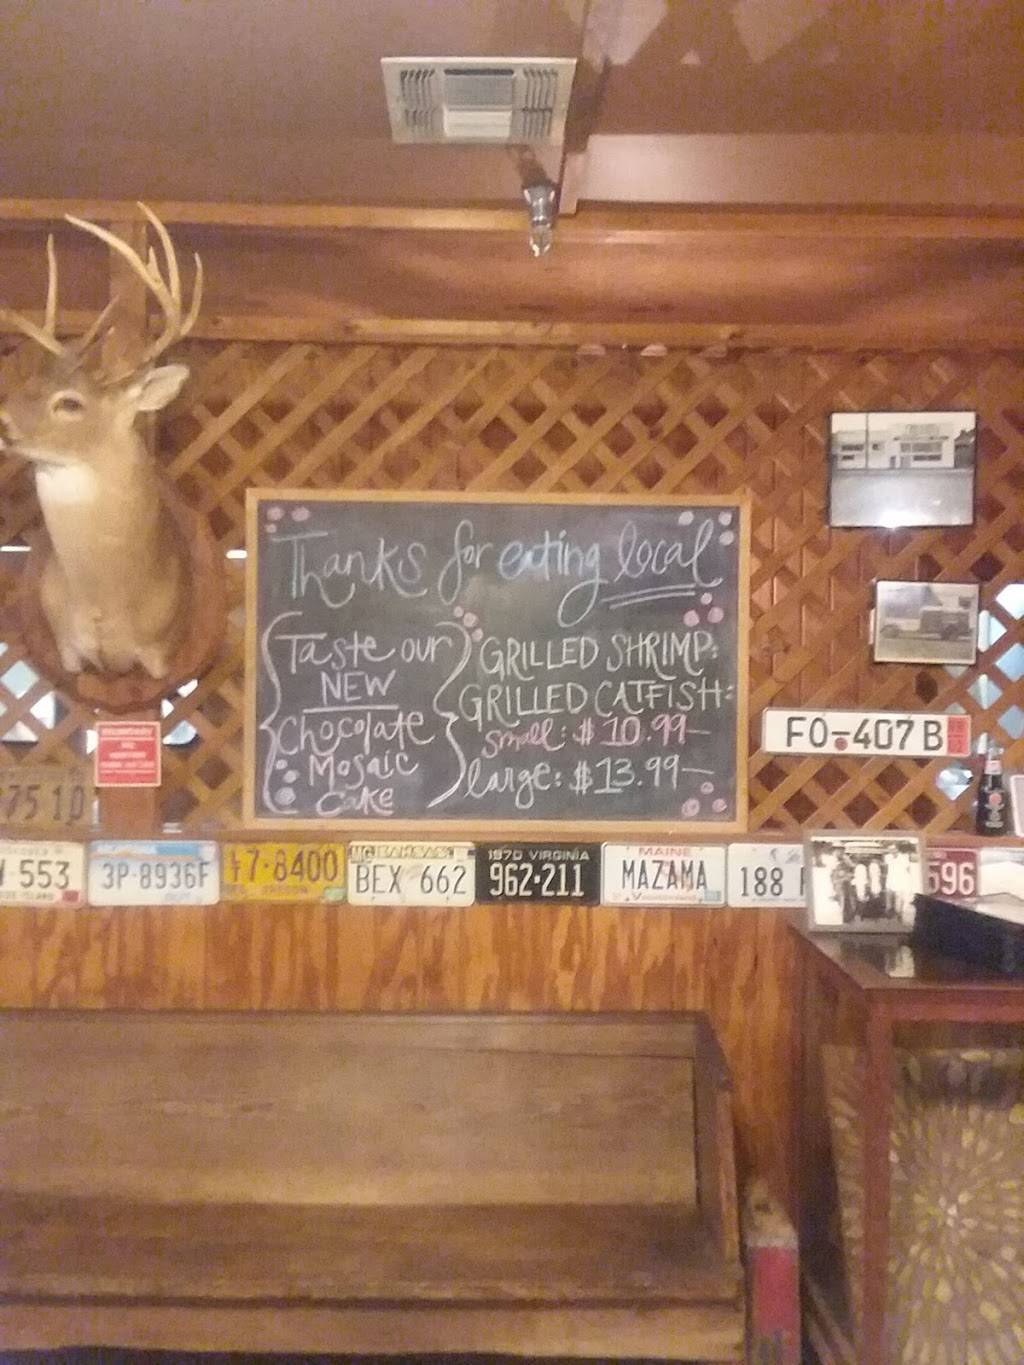 Thanks for eating local
Taste our
NEW
Chocolate
Mosaic
Cake
GRILLED SHRIMP:
GRILLED CATFISH:
small: $10.99—
large: $13.99—
FO-407B
7510
553
3P-8936F
47·8400
OREGON
KANSAS
BEX 662
1970 VIRGINIA
962·211
MAINE
MAZAMA
Vacationland
188
696